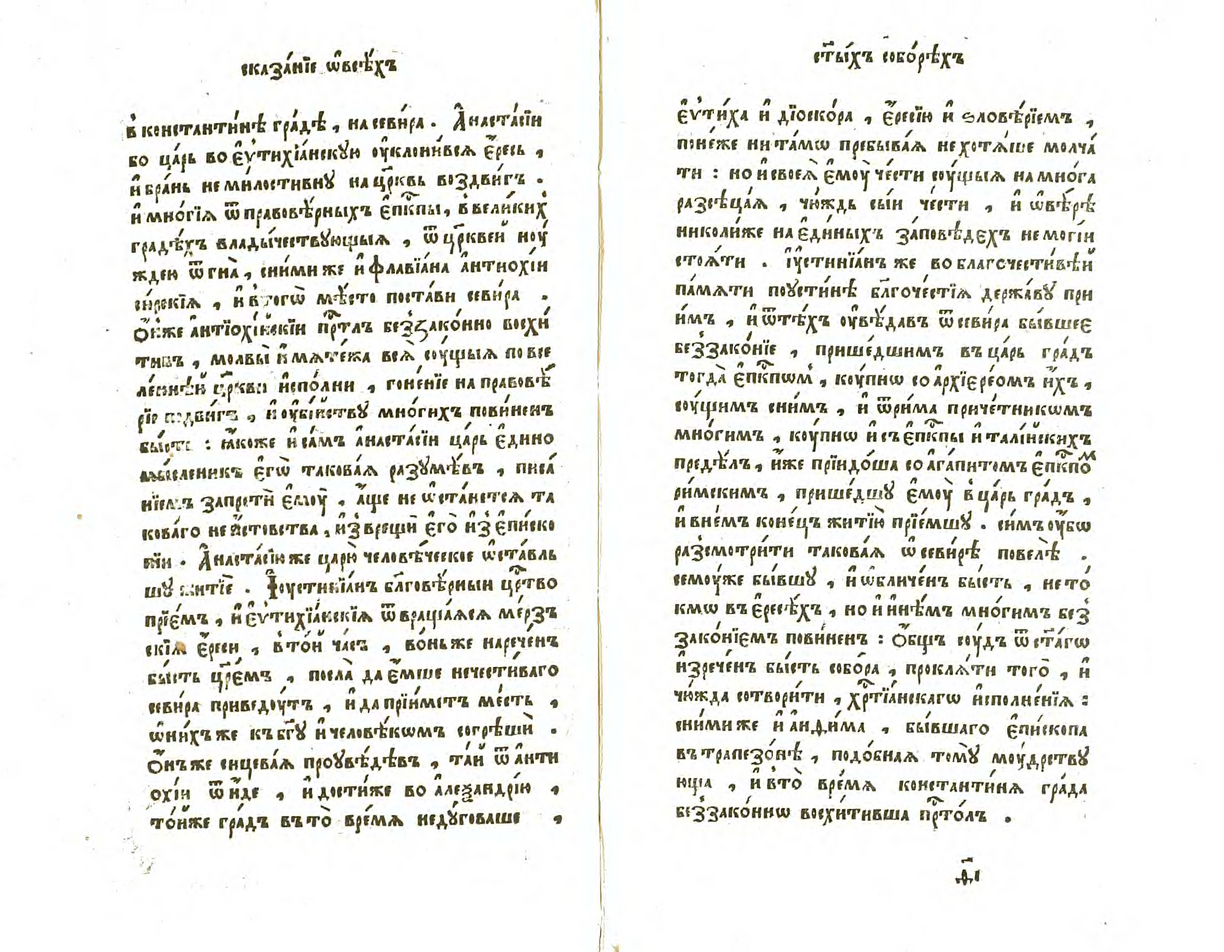 сказа́нїе ѡ҆всѣ́хъ
в҆ константи́нѣ гра́дѣ , на севи́ра . А҆наста́сїи
бо ца́рь во є҆ѵтихїа́нскую ѹ҆клони́вся є҆́ресь ,
и҆ бра́нь неми́лостивну на цр҃ковь воздви́гъ .
и҆ мно́гїя ѿ правовѣ́рныхъ є҆пкпы, в҆ вели́кихъ
градѣ́хъ влады́чествующыя , ѿ цр҃кве́й ноу́
ждею ѿгна̀ , сни́ми же и҆ флавїа́на а҆нтиохі́и
си́рскїя , и҆ в то́гѡ мѣ́сто поста́ви севи́ра .
Ѻ҆́нже а҆нтїохі́искїи прⷭ҇тлъ беззако́нно восхи́
тивъ , молвы̀ и҆ мяте́жа вся̀ соу́щыя по все
ле́ннѣй цр҃кви и҆спо́лни , гоне́нїе на правовѣ́
рїе подви́гъ , и҆ ѹ҆бі́йству мно́гихъ пови́ненъ
бы́сть : ꙗ҆́коже и҆ са́мъ а҆наста́сїи ца́рь є҆ди́но
мы́сленикъ є҆гѡ̀ такова́я разумѣ́въ , писа́
нїемъ запретѝ є҆моу̀ , а҆́ще не ѡ҆ста́нется та
кова́го неи҆́стовства , и҆зврещѝ є҆го̀ и҆з є҆писко
пїи . А҆наста́сїю же царю̀ человѣ́ческое ѡ҆ста́вль
шу житїѐ . І҆оустинїа́нъ бл҃говѣ́рныи црⷭ҇тво
прїе́мъ , и҆ є҆ѵтихїа́нскїя ѿвраща́яся ме́рзъ
скїя є҆́реси , в҆ то́й ча́съ , во́ньже нарече́нъ
бы́сть цр҃е́мъ , посла̀ да є҆́мше нечести́ваго
севи́ра приведоу́тъ , и҆ да прїи́метъ ме́сть ,
ѡ҆ ни́хъ же къ бг҃у и҆ человѣ́кѡмъ согрѣшѝ .
Ѻ҆́нъ же сицева́я проувѣ́дѣвъ , та́й ѿ а҆нти
охі́и ѿи́де , и҆ дости́же во а҆леѯандрі́ю ,
то́йже гра́дъ въ то̀ вре́мя неду́говаше ,
ст҃ы́хъ собо́рѣхъ
є҆ѵти́ха и҆ дїоско́ра , є҆́ресїю и҆ ѕловѣ́рїемъ ,
поне́же ни та́мѡ пребыва́я не хотя́ше молча́
ти : но и҆ своея̀ є҆моу̀ че́сти соу́щыя на мно́га
разсѣца́я , чю́ждь сы́и че́сти , и҆ ѡ҆ вѣ́рѣ
николи́же на є҆ди́ныхъ за́поведехъ немоги́и
стоя́ти . І҆устинїа́нъ же во благочести́вѣй
па́мяти поусти́нѣ бл҃гоче́стїя держа́ву при
и́мъ , и҆ ѿ тѣ́хъ ѹ҆вѣ́давъ ѿ севи́ра бы́вшее
беззако́нїе , прише́дшимъ въ ца́рь гра́дъ
тогда̀ є҆пкпѡм , коу́пнѡ со а҆рхїере́ом и҆́хъ ,
соу́щим сни́мъ , и҆ ѿ ри́ма приче́тникѡмъ
мно́гимъ , коу́пнѡ и҆ съ є҆пкпы и҆тали́йскихъ
предѣ́лъ , и҆́же прїидо́ша со а҆гапи́том є҆пкпом
ри́мскимъ , прише́дшу є҆моу̀ в҆ ца́рь гра́дъ ,
и҆ в не́мъ коне́цъ житїю̀ прїе́мшу . си́мъ ѹ҆́бѡ
разсмотри́ти такова́я ѡ҆ севи́рѣ повелѣ̀ .
семоу́же бы́вшу , и҆ ѡ҆бличе́нъ бы́сть , не то́
кмѡ въ є҆́ресѣхъ , но и҆ и҆нѣ́мъ мно́гимъ без
зако́нїемъ пови́ненъ : Ѻ҆́бщъ соу́дъ ѿ ст҃а́гѡ
и҆зрече́нъ бы́сть собо́ра , прокля́ти того̀ , и҆
чю́жда сотвори́ти , хрⷭ҇тїа́нскагѡ и҆сполне́нїя :
сни́ми же и҆ а҆нди́ма , бы́вшаго є҆пи́скопа
въ трапезо́нѣ , подо́бная тому̀ моу́дрству
юща , и҆ в то̀ вре́мя константи́ня гра́да
беззако́ннѡ восхи́тивша прⷭ҇то́лъ .